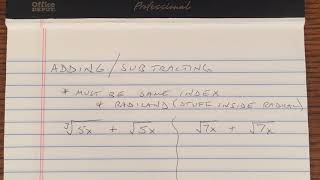 Office DEPOT Professional
ADDING/SUBTRACTING
* MUST BE SAME INDEX
* RADICAND (STUFF INSIDE RADICAL)
∛5x + √5x √7x + √7x